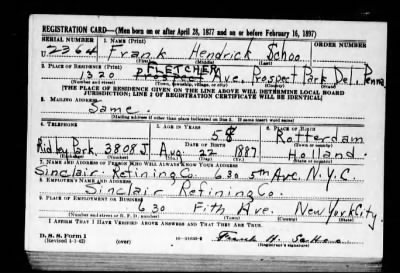 REGISTRATION CARD—(Men born on or after April 28, 1877 and on or before February 16, 1897)
SERIAL NUMBER 1. NAME (Print) ORDER NUMBER
U. 2264 Frank Hendrick Schoo
(First) (Middle) (Last)
2. PLACE OF RESIDENCE (Print) FLETCHER
1320 Ave. Prospect Park Del. Penna
(Number and street) (Town) (County) (State)
[THE PLACE OF RESIDENCE GIVEN ON THE LINE ABOVE WILL DETERMINE LOCAL BOARD
JURISDICTION; LINE 2 OF REGISTRATION CERTIFICATE WILL BE IDENTICAL]
3. MAILING ADDRESS
Same.
[Mailing address if other than place indicated on line 2. If same insert word same]
4. TELEPHONE 5. AGE IN YEARS 6. PLACE OF BIRTH
DATE OF BIRTH Rotterdam
(Town or county)
Ridley Park. 3808 J Aug. 22 1887 Holland
(Exchange) (Number) (Mo.) (Day) (Yr.) (State or country)
7. NAME AND ADDRESS OF PERSON WHO WILL ALWAYS KNOW YOUR ADDRESS
Sinclair Refining Co. 630 5th Ave. N.Y.C.
8. EMPLOYER'S NAME AND ADDRESS
Sinclair Refining Co.
9. PLACE OF EMPLOYMENT OR BUSINESS
630 Fith Ave. New York City
(Number and street or R. F. D. number) (Town) (County) (State)
I AFFIRM THAT I HAVE VERIFIED ABOVE ANSWERS AND THAT THEY ARE TRUE.
D. S. S. Form 1
(Revised 4-1-42) (over) Frank H. Schoo